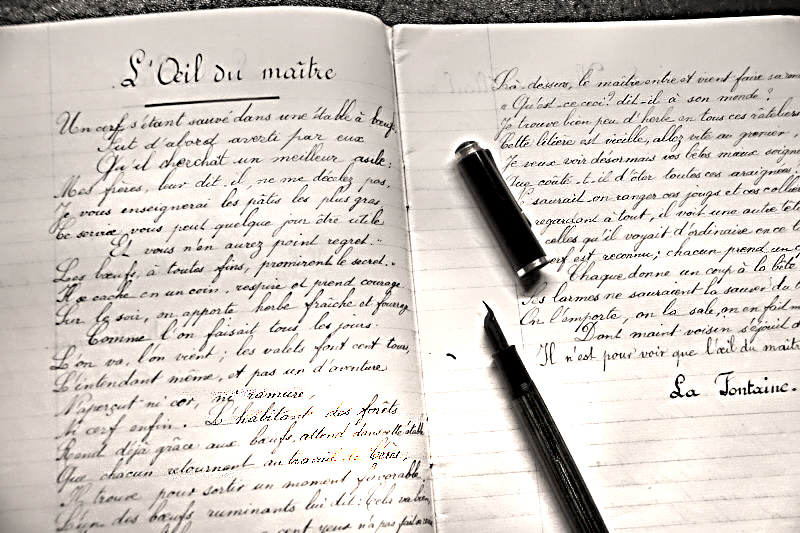 L'Œil du maître
Un cerf s'étant sauvé dans une étable à bœufs,
Fut d'abord averti par eux
Qu'il cherchât un meilleur asile:
Mes frères, leur dit-il, ne me décelez pas,
Je vous enseignerai les pâtis les plus gras,
Ce service vous peut quelque jour être utile
Et vous n'en aurez point regret."
Les bœufs, à toutes fins, promirent le secret.
Il se cache en un coin, respire et prend courage.
Sur le soir, on apporte herbe fraîche et fourrage
Comme l'on faisait tous les jours:
L'on va, l'on vient; les valets font cent tours,
L'intendant même, et pas un d'aventure
N'aperçut ni cor, ni ramure,
Ni cerf enfin. L'habitant des forêts
Rend déjà grâce aux bœufs, attend dans cette étable
Que chacun retournant au travail de Cérès,
Il trouve pour sortir un moment favorable
L'un des bœufs ruminants lui dit: Cela va bien,
cent yeux n'a pas fait sa revue
Là-dessus, le maître entre et vient faire sa ronde
"Qu'est-ce ceci? dit-il à son monde?
Je trouve bien peu d'herbe en tous ces râteliers
Cette litière est vieille, allez vite au grenier,
Je veux voir désormais vos bêtes mieux soignées
Que coûte-t-il d'ôter toutes ces araignées?
saurait-on ranger ces jougs et ces colliers
regardant à tout, il voit une autre tête
celles qu'il voyait d'ordinaire en ce l
cerf est reconnu; chacun prend un
Chacun donne un coup à la bête
Ses larmes ne sauraient la sauver du
On l'emporte, on la sale, on en fait m
Dont maint voisin s'éjouit d
Il n'est pour voir que l'œil du maître
La Fontaine.